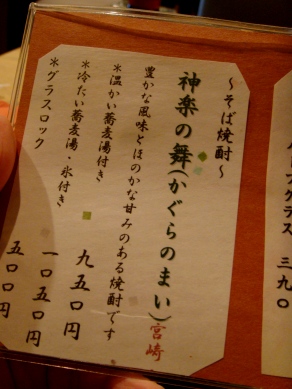 ～そば焼酎～
神楽の舞(かぐらのまい)宮崎
豊かな風味とほのかな甘みのある焼酎です
＊温かい蕎麦湯付き 九五〇円
＊冷たい蕎麦湯・氷付き 一〇五〇円
＊グラスロック 五〇〇円
プグラス 三九〇